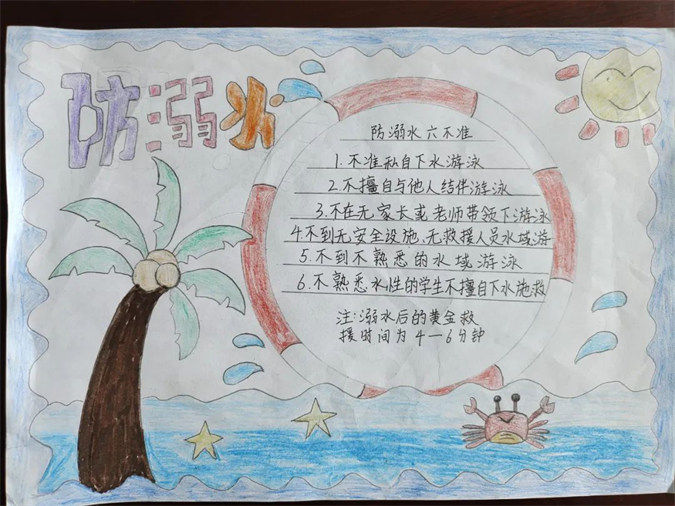 防溺水
防溺水六不准
1.不准私自下水游泳
2.不擅自与他人结伴游泳
3.不在无家长或老师带领下游泳
4不到无安全设施、无救援人员水域游
5.不到不熟悉的水域游泳
6.不熟悉水性的学生不擅自下水施救
注:溺水后的黄金救
援时间为4—6分钟